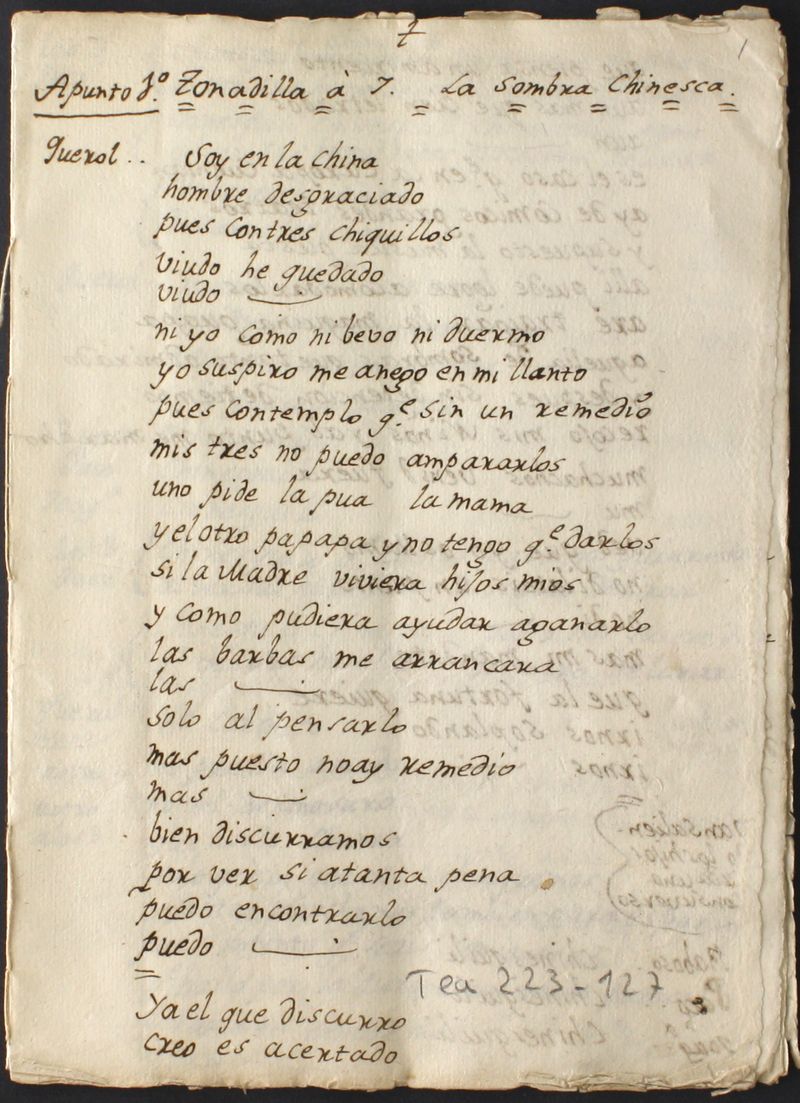 1
Apunto 1.º Tonadilla à 7. La Sombra Chinesca.
Querol.. Soy en la China
hombre desgraciado
pues con tres chiquillos
viudo he quedado
viudo
ni yo como ni bevo ni duermo
yo suspiro me anego en mi llanto
pues contemplo q.e sin un remedio
mis tres no puedo ampararlos
uno pide la pua la mama
y el otro papapa y no tengo q.e darlos
si la Madre viviera hijos mios
y como pudiera ayudar aganarlo
las barbas me arrancara
las
solo al pensarlo
mas puesto noay remedio
mas
bien discurramos
por ver si atanta pena
puedo encontrarlo
puedo
Tea 223-127
Ya el que discurro
creo es acertado